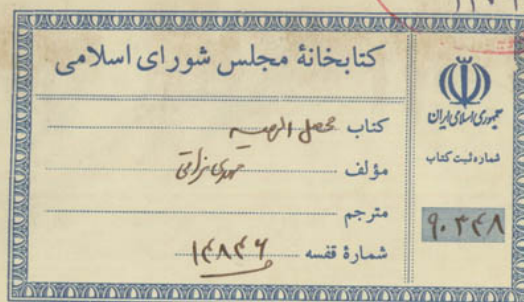 کتابخانهٔ مجلس شورای اسلامی
کتاب محصل الهیه
مؤلف مهدی نراقی
مترجم
شمارهٔ قفسه ۱۴۸۴۶
جمهوری اسلامی ایران
شماره ثبت کتاب
۹۰۳۴۸